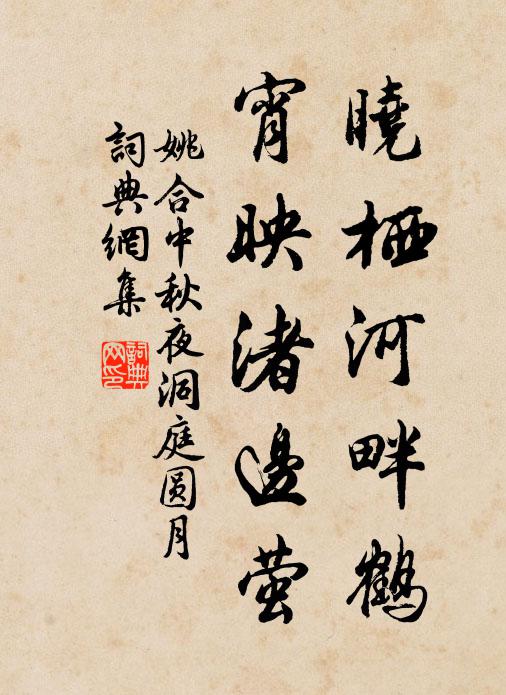 曉栖河畔鶴
宵映渚邊螢
姚合中秋夜洞庭圓月
詞典網集
詞典網印